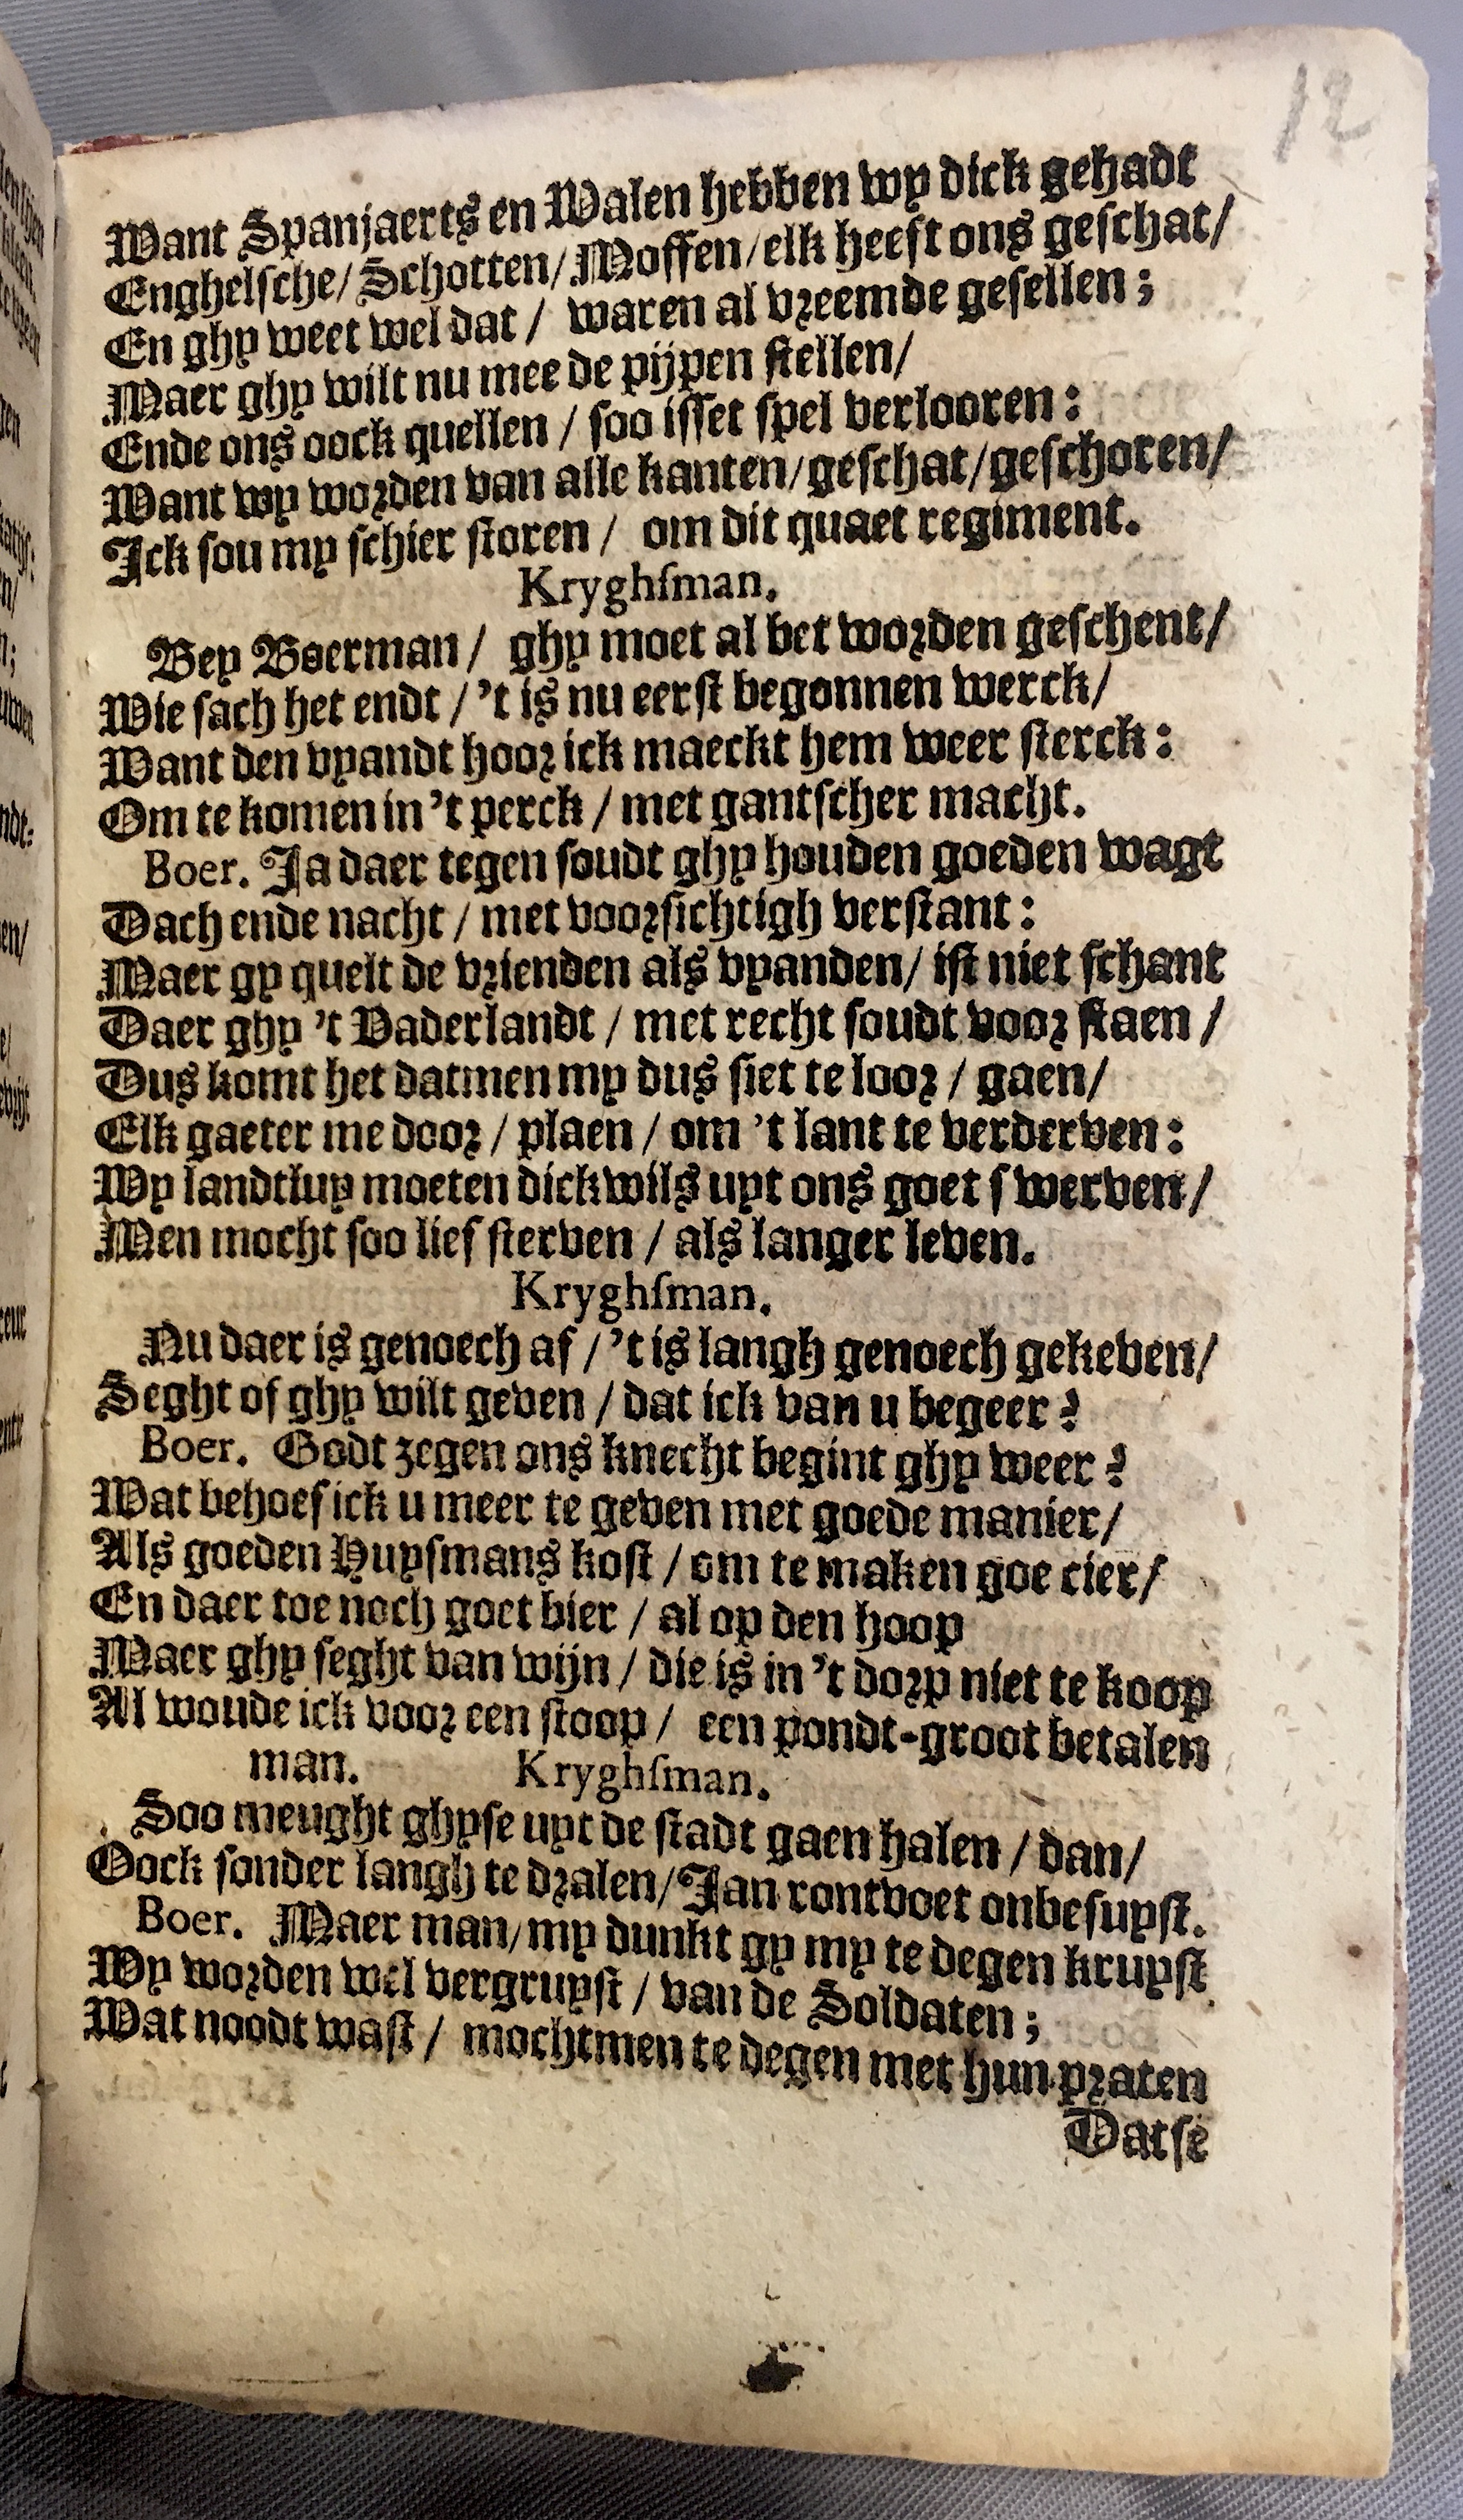 12
Want Spanjaerts en Walen hebben wy dick gehadt
Enghelsche/ Schotten/ Moffen/ elk heeft ons geschat/
En ghy weet wel dat / waren al vreemde gesellen;
Maer ghy wilt nu mee de pijpen stellen/
Ende ons oock quellen / soo isset spel verlooren:
Want wy worden van alle kanten/ geschat/ geschoren/
Ick sou my schier storen / om dit quaet regiment.
Kryghſman.
Bey Boerman / ghy moet al bet worden geschent/
Wie sach het endt / 't is nu eerst begonnen werck/
Want den vyandt hoor ick maeckt hem weer sterck:
Om te komen in 't perck / met gantscher macht.
Boer. Ja daer tegen soudt ghy houden goeden wagt
Dach ende nacht / met voorsichtigh verstant:
Maer gy quelt de vrienden als vyanden/ ist niet schant
Daer ghy 't Vaderlandt / met recht soudt voor staen /
Dus komt het datmen my dus siet te loor / gaen/
Elk gaeter me door / plaen / om 't lant te verderven:
Wy landtluy moeten dickwils uyt ons goet swerven/
Men mocht soo lief sterven / als langer leven.
Kryghſman.
Nu daer is genoech af / 't is langh genoech gekeven/
Seght of ghy wilt geven / dat ick van u begeer?
Boer. Godt zegen ons knecht begint ghy weer?
Wat behoef ick u meer te geven met goede manier/
Als goeden Huysmans kost / om te maken goe cier/
En daer toe noch goet bier / al op den hoop
Maer ghy seght van wijn / die is in 't dorp niet te koop
Al woude ick voor een stoop / een pondt-groot betalen
man. Kryghſman.
Soo meught ghyse uyt de stadt gaen halen / dan/
Oock sonder langh te dralen/ Jan rontvoet onbesuyst.
Boer. Maer man/ my dunkt gy my te degen kruyst
Wy worden wel vergruyst / van de Soldaten;
Wat noodt wast / mochtmen te degen met hun praten
Datse